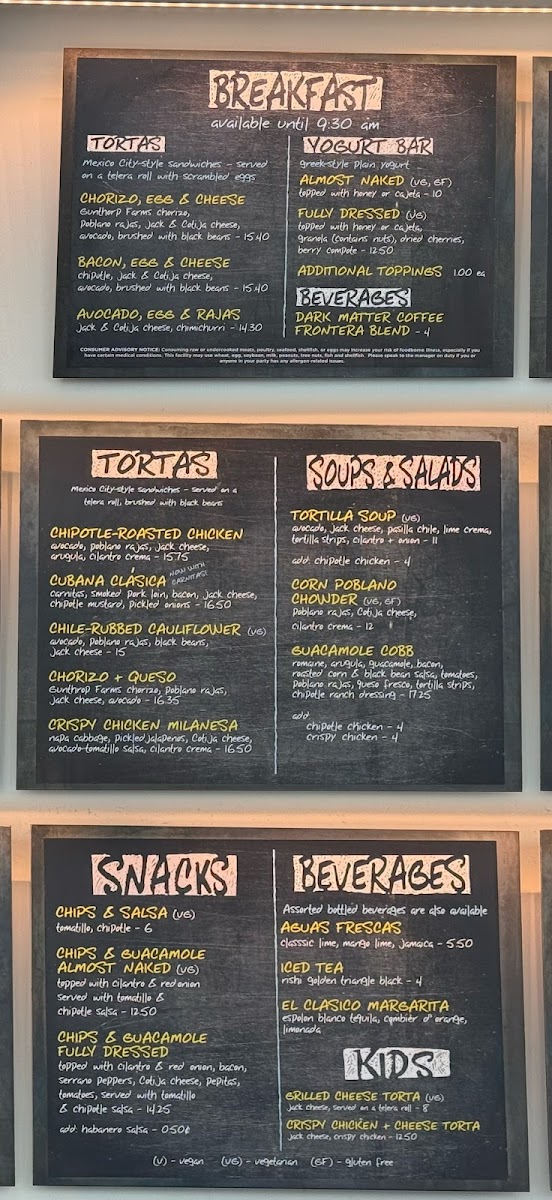 BREAKFAST
available until 9:30 am
TORTAS
Mexico City-style sandwiches - served
on a telera roll with scrambled eggs
CHORIZO, EGG & CHEESE
Gunthorp Farms chorizo,
Poblano rajas, jack & Cotija cheese,
avocado, brushed with black beans - 15.40
BACON, EGG & CHEESE
chipotle, jack & Cotija cheese,
avocado, brushed with black beans - 15.40
AVOCADO, EGG & RAJAS
jack & Cotija cheese, chimichurri - 14.30
YOGURT BAR
greek-style plain yogurt
ALMOST NAKED (VG, GF)
topped with honey or cajeta - 10
FULLY DRESSED (VG)
topped with honey or cajeta,
granola (contains nuts), dried cherries,
berry compote - 12.50
ADDITIONAL TOPPINGS 1.00 ea
BEVERAGES
DARK MATTER COFFEE
FRONTERA BLEND - 4
CONSUMER ADVISORY NOTICE: Consuming raw or undercooked meats, poultry, seafood, shellfish, or eggs may increase your risk of foodborne illness, especially if you
have certain medical conditions. This facility may use wheat, egg, soybean, milk, peanuts, tree nuts, fish and shellfish. Please speak to the manager on duty if you or
anyone in your party has any allergen-related issues.
TORTAS
Mexico City-style sandwiches - served on a
telera roll, brushed with black beans
CHIPOTLE-ROASTED CHICKEN
avocado, poblano rajas, jack cheese,
arugula, cilantro crema - 15.75
CUBANA CLÁSICA NOW WITH
CARNITAS!
carnitas, smoked pork loin, bacon, jack cheese,
chipotle mustard, pickled onions - 16.50
CHILE-RUBBED CAULIFLOWER (VG)
avocado, poblano rajas, black beans,
jack cheese - 15
CHORIZO + QUESO
Gunthrop Farms chorizo, poblano rajas,
jack cheese, avocado - 16.35
CRISPY CHICKEN MILANESA
napa cabbage, pickled jalapenos, Cotija cheese,
avocado-tomatillo salsa, cilantro crema - 16.50
SOUPS & SALADS
TORTILLA SOUP (VG)
avocado, jack cheese, pasilla chile, lime crema,
tortilla strips, cilantro + onion - 11
add: chipotle chicken - 4
CORN POBLANO
CHOWDER (VG, GF)
Poblano rajas, Cotija cheese,
cilantro crema - 12
GUACAMOLE COBB
romaine, arugula, guacamole, bacon,
roasted corn & black bean salsa, tomatoes,
poblano rajas, queso fresco, tortilla strips,
chipotle ranch dressing - 17.25
add
chipotle chicken - 4
crispy chicken - 4
SNACKS
CHIPS & SALSA (VG)
tomatillo, chipotle - 6
CHIPS & GUACAMOLE
ALMOST NAKED (VG)
topped with cilantro & red onion
served with tomatillo &
chipotle salsa - 12.50
CHIPS & GUACAMOLE
FULLY DRESSED
topped with cilantro & red onion, bacon,
serrano peppers, Cotija cheese, pepitas,
tomatoes, served with tomatillo
& chipotle salsa - 14.25
add: habanero salsa - 0.50¢
BEVERAGES
Assorted bottled beverages are also available
AGUAS FRESCAS
classsic lime, mango lime, jamaica - 5.50
ICED TEA
rishi golden triangle black - 4
EL CLASICO MARGARITA
espolon blanco tequila, combier d' orange,
limonada
KIDS
GRILLED CHEESE TORTA (VG)
jack cheese, served on a telera roll - 8
CRISPY CHICKEN + CHEESE TORTA
jack cheese, crispy chicken - 12.50
(V) - vegan (VG) - vegetarian (GF) - gluten free